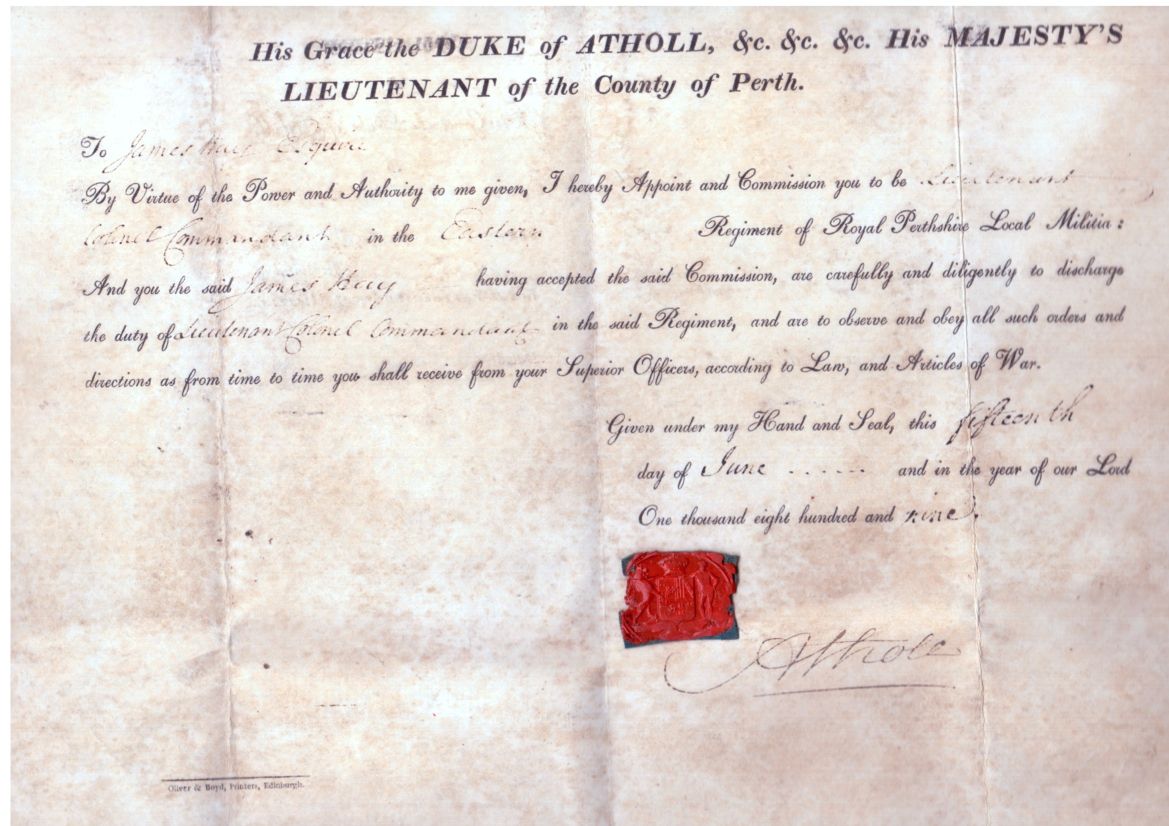 His Grace the DUKE of ATHOLL, &c. &c. &c. His MAJESTY'S
LIEUTENANT of the County of Perth.
To James Hay Esquire
By Virtue of the Power and Authority to me given, I hereby Appoint and Commission you to be Lieutenant
Colonel Commandant in the Eastern Regiment of Royal Perthshire Local Militia:
And you the said James Hay having accepted the said Commission, are carefully and diligently to discharge
the duty of Lieutenant Colonel Commandant in the said Regiment, and are to observe and obey all such orders and
directions as from time to time you shall receive from your Superior Officers, according to Law, and Articles of War.
Given under my Hand and Seal, this fifteenth
day of June ------ and in the year of our Lord
One thousand eight hundred and nine.
Atholl
Oliver & Boyd, Printers, Edinburgh.